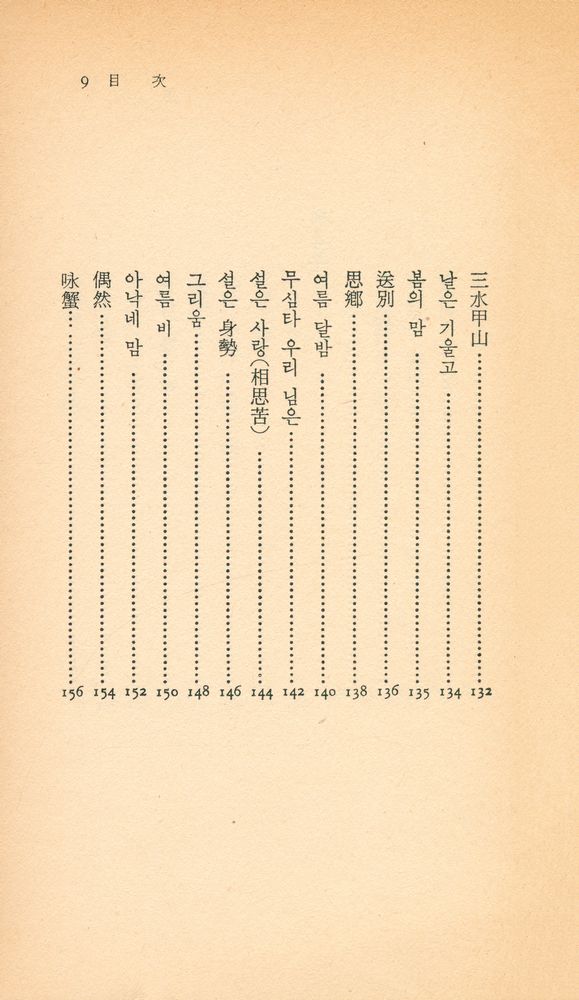 9 目 次
三水甲山 132
날은 기울고 134
봄의 맘 135
送別 136
思鄕 138
여름 달밤 140
무심타 우리 님은 142
설은 사랑(相思苦) 144
설은 身勢 146
그리움 148
여름 비 150
아낙네 맘 152
偶然 154
咏蟹 156